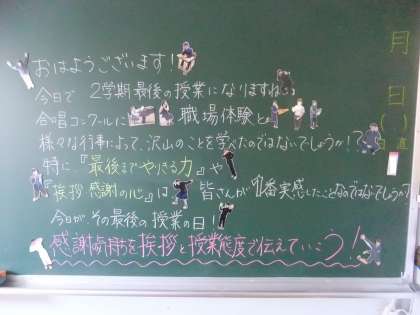 おはようございます!
今日で 2学期最後の授業になりますね。
合唱コンクールに 職場体験と
様々な行事によって、沢山のことを学べたのではないでしょうか!?
特に、『最後までやりきる力』や
『挨拶・感謝の心』は 皆さんが 1番実感したことなのではないでしょうか?
今日が、その最後の授業の日!
感謝の気持ちを挨拶と授業態度で伝えていこう!
月
日
( )
日直